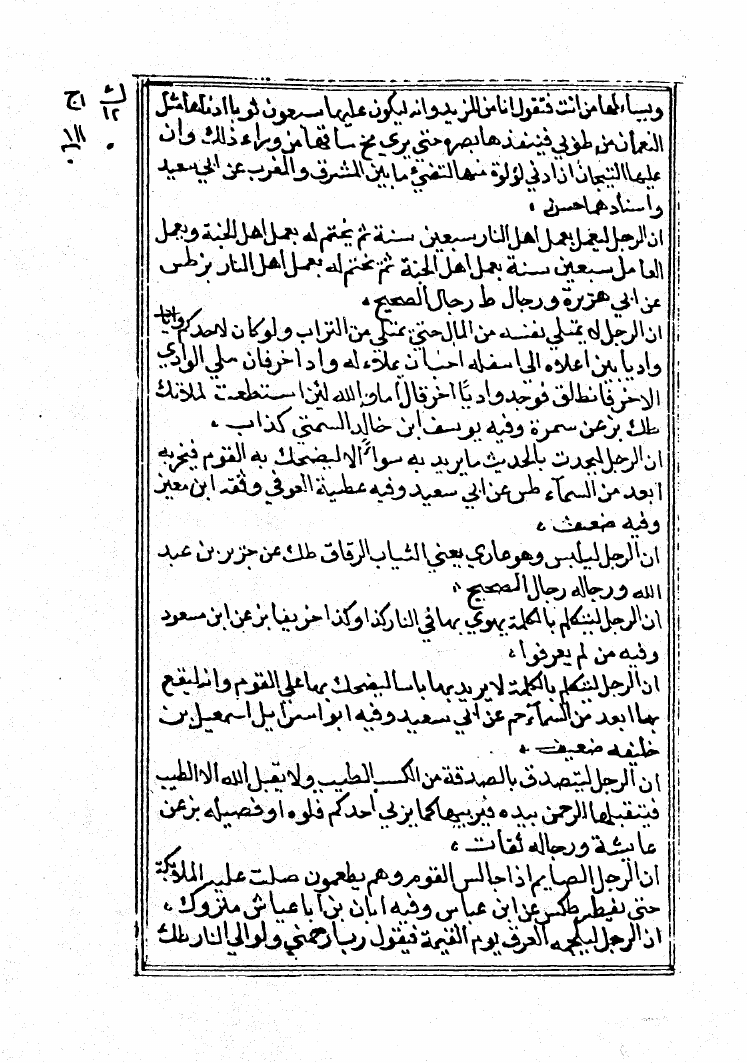 ويسألها من انت فتقول انا من المزيد وانه ليكون عليها سبعون ثوبا ادناها مثل
النعمان من طوبى فينفذها بصره حتى يرى مخ ساقها من وراء ذلك وان
عليها التيجان ان ادنى لؤلؤة منها لتضيء ما بين المشرق والمغرب عن ابي سعيد
واسنادهما حسن
ان الرجل ليعمل بعمل اهل النار سبعين سنة ثم يختم له بعمل اهل الجنة ويعمل
العامل سبعين سنة بعمل اهل الجنة ثم يختم له بعمل اهل النار بز طس
عن ابي هريرة ورجال ط رجال الصحيح
ان الرجل لا يمتلي نفسه من المال حتى يمتلي من التراب ولو كان لاحدكم واديا
واديا بين اعلاه الى اسفله احب ان يملاء له واد اخر فان ملي الوادي
الاخر فانطلق فوجد واديا آخر قال أما والله لئن استطعت لملأنك
طك بز عن سمرة وفيه يوسف ابن خالد السمتي كذاب
ان الرجل ليحدث بالحديث ما يريد به سواً الا ليضحك به القوم فيخر به
ابعد من السمآء طس عن ابي سعيد وفيه عطية العوفي وثقه ابن معين
وفيه ضعف
ان الرجل ليلبس وهو عاري يعني الثياب الرقاق طك عن جرير بن عبد
الله ورجاله رجال الصحيح
ان الرجل ليتكلم بالكلمة يهوي بها في النار كذا وكذا خريفا بز عن ابن مسعود
وفيه من لم يعرفوا
ان الرجل ليتكلم بالكلمة لا يريد بها باسا ليضحك بها على القوم وانه ليقع
بها ابعد من السمآء حم عن ابي سعيد وفيه ابو اسرايل اسمعيل بن
خليفه ضعيف
ان الرجل ليتصدق بالصدقة من الكسب الطيب ولا يقبل الله الا الطيب
فيتقبلها الرحمن بيده فيربيها كما يربي أحدكم فلوه او فصيله بز عن
عايشة ورجاله ثقات
ان الرجل الصايم اذا جالس القوم وهم يطعمون صلت عليه الملايكة
حتى يفطر طكس عن ابن عباس وفيه ابان بن ابا عياش متروك
ان الرجل ليلجمه العرق يوم القيمة فيقول رب ارحمني ولو الى النار طك